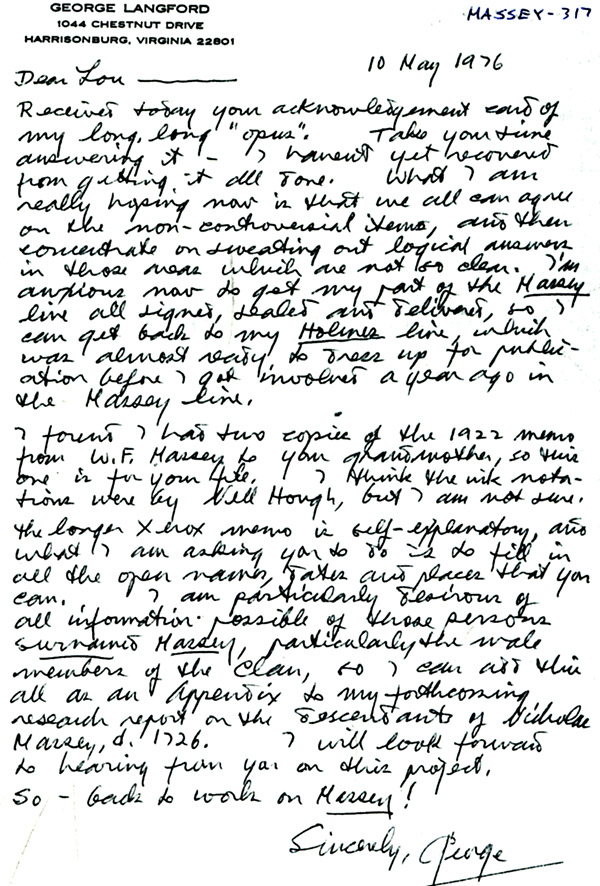 GEORGE LANGFORD
1044 CHESTNUT DRIVE
HARRISONBURG, VIRGINIA 22801
MASSEY-317
10 May 1976
Dear Lou
Received today your acknowledgement card of
my long, long "opus". Take your time
answering it - I haven't yet recovered
from getting it all done. What I am
really hoping now is that we all can agree
on the non-controversial items, and then
concentrate on sweating out logical answers
in those areas which are not so clear. I'm
anxious now to get my part of the Massey
line all signed, sealed and delivered, so I
can get back to my Holmes line, which
was almost ready to dress up for public-
ation before I got involved a year ago in
the Massey line.
I found I had two copies of the 1922 memo
from W.F. Massey to your grandmother, so this
one is for your file. I think the ink nota-
tions were by Nell Hough, but I am not sure.
The longer Xerox memo is self-explanatory, and
what I am asking you to do is to fill in
all the open names, dates and places that you
can. I am particularly desirous of
all information possible of those persons
surnamed Massey, particularly the male
members of the clan, so I can add this
all as an Appendix to my forthcoming
research report on the descendants of Nicholas
Massey, d. 1726. I will look forward
to hearing from you on this project.
So - back to work on Massey!
Sincerely, George